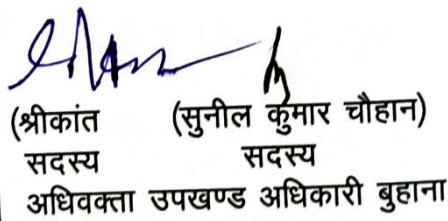 (श्रीकांत (सुनील कुमार चौहान)
सदस्य सदस्य
अधिवक्ता उपखण्ड अधिकारी बुहाना